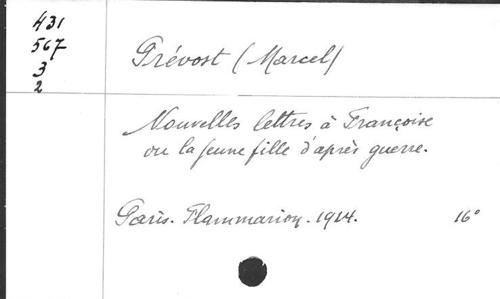 431
567
3
2
Prévost (Marcel)
Nouvelles lettres à Françoise
ou la jeune fille d'après guerre.
Paris. Flammarion. 1924. 16°